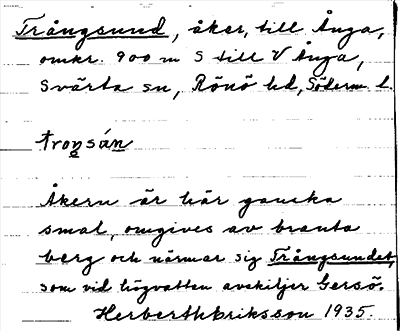 Trångsund, åker, till Ånga,
omkr. 900 m S till V Ånga,
Svärta sn, Rönö hd, Söderm. l.
tro̤nsán
Åkern är här ganska
smal, omgives av branta
berg och närmar sig Trångsundet,
som vid högvatten avskiljer Gersö.
Herbert Eriksson 1935.